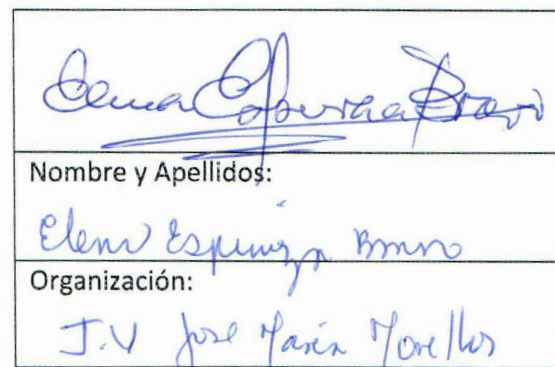 Elena Espinoza Bravo
Nombre y Apellidos:
Elena Espinoza Bravo
Organización:
J.V José María Morellos